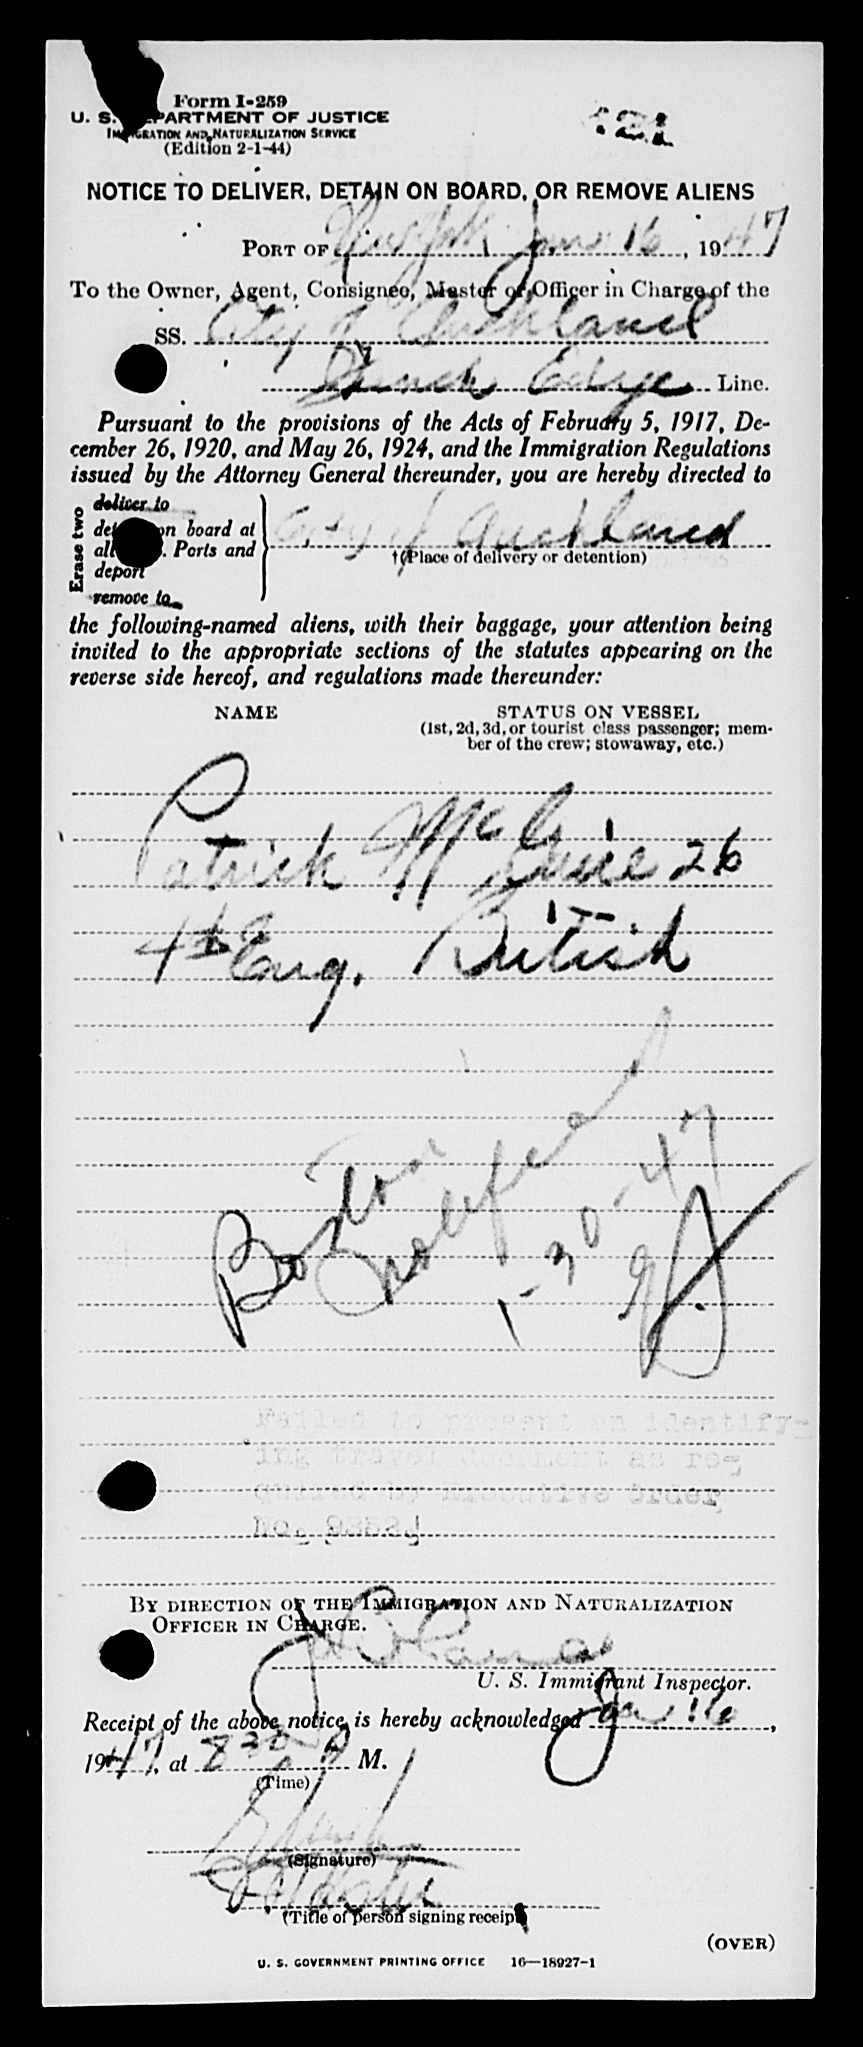 Form I-259
U. S. DEPARTMENT OF JUSTICE
IMMIGRATION AND NATURALIZATION SERVICE
(Edition 2-1-44)
121
NOTICE TO DELIVER, DETAIN ON BOARD, OR REMOVE ALIENS
PORT OF New York Jan 16, 1947
To the Owner, Agent, Consignee, Master or Officer in Charge of the
SS. City of Auckland
Line.
Pursuant to the provisions of the Acts of February 5, 1917, De-
cember 26, 1920, and May 26, 1924, and the Immigration Regulations
issued by the Attorney General thereunder, you are hereby directed to
Erase two
deliver to
detain on board at
all U. S. Ports and
deport
remove to
City of Auckland
†(Place of delivery or detention)
the following-named aliens, with their baggage, your attention being
invited to the appropriate sections of the statutes appearing on the
reverse side hereof, and regulations made thereunder:
NAME
STATUS ON VESSEL
(1st, 2d, 3d, or tourist class passenger; mem-
ber of the crew; stowaway, etc.)
Patrick McGuire 26
4th Eng. British
Boston notified
1-30-47
Failed to present an identify-
ing travel document as re-
quired by Executive Order
No. 9352.
BY DIRECTION OF THE IMMIGRATION AND NATURALIZATION
OFFICER IN CHARGE.
U. S. Immigrant Inspector.
Receipt of the above notice is hereby acknowledged Jan 16,
1947, at 8 30 A M.
(Time)
(Signature)
Master
(Title of person signing receipt)
(OVER)
U. S. GOVERNMENT PRINTING OFFICE 16—18927-1